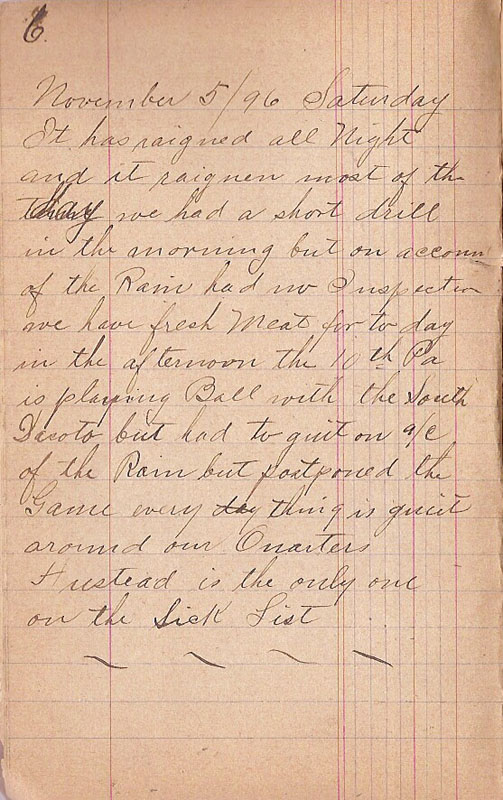 6.
November 5/96 Saturday
It has raigned all Night
and it raignen most of the
day we had a short drill
in the morning but on accoun
of the Rain had no Inspection
we have fresh Meat for to day
in the afternoon the 10th Pa
is playing Ball with the South
Dacoto but had to quit on a/c
of the Rain but postponed the
Game every day thing is quiet
around our Quarters
is the only one
on the Sick List